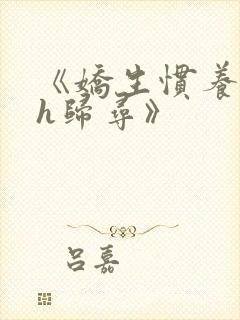 《嬌生慣養
h歸尋》
呂嘉